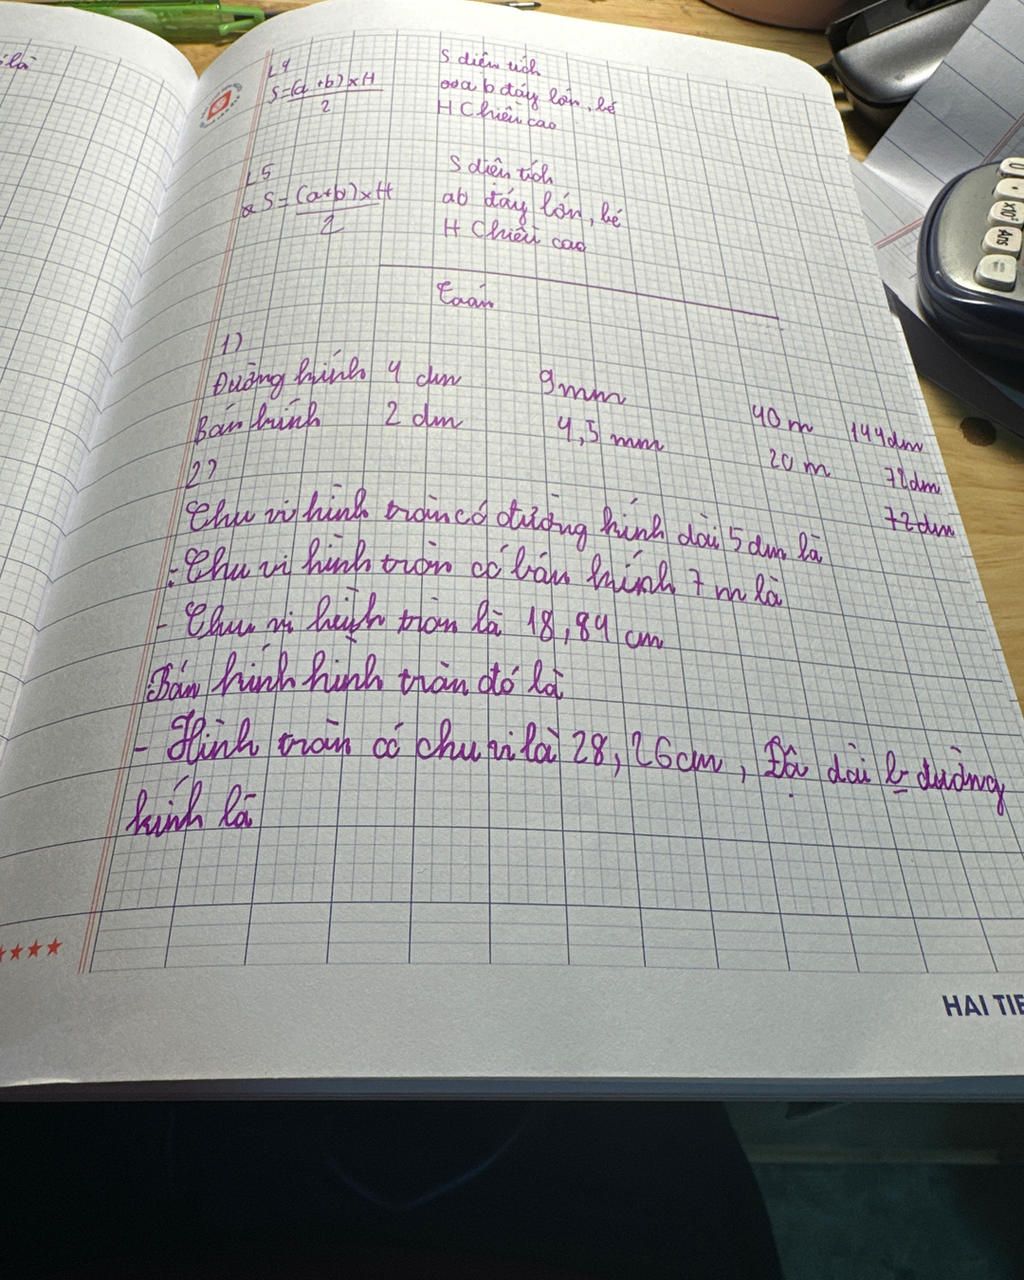 L4
S=(a+b)xH
2
S diện tích
a b đáy lớn, bé
H Chiều cao
L5
S=(a+b)xH
2
S diện tích
ab đáy lớn, bé
H Chiều cao
Toán
1)
Đường kính 4 dm 9mm 40 m 144dm
Bán kính 2 dm 4,5 mm 20 m 72dm
72dm
2)
Chu vi hình tròn có đường kính dài 5 dm là
- Chu vi hình tròn có bán kính 7 m là
- Chu vi hình tròn là 18,84 cm
Bán kính hình tròn đó là
- Hình tròn có chu vi là 28,26cm, Độ dài đường
kính là
HAI TIE
x10ˣ
Ans
=